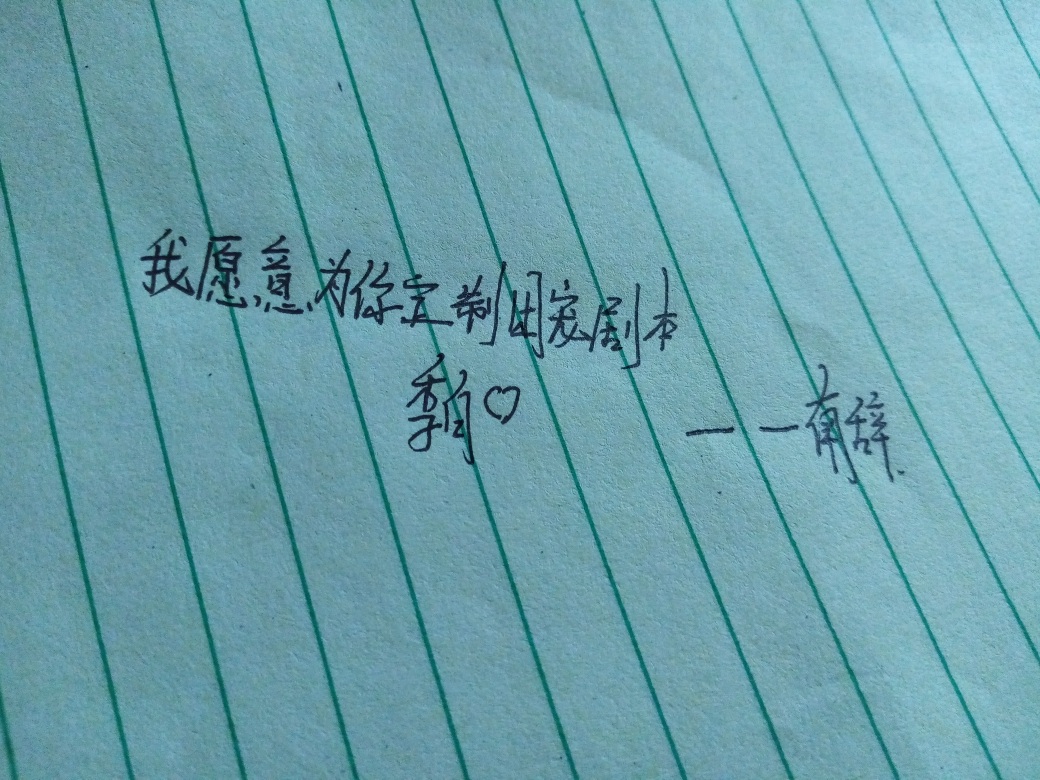 我愿意为你定制团宠剧本
季白♡
——有辞